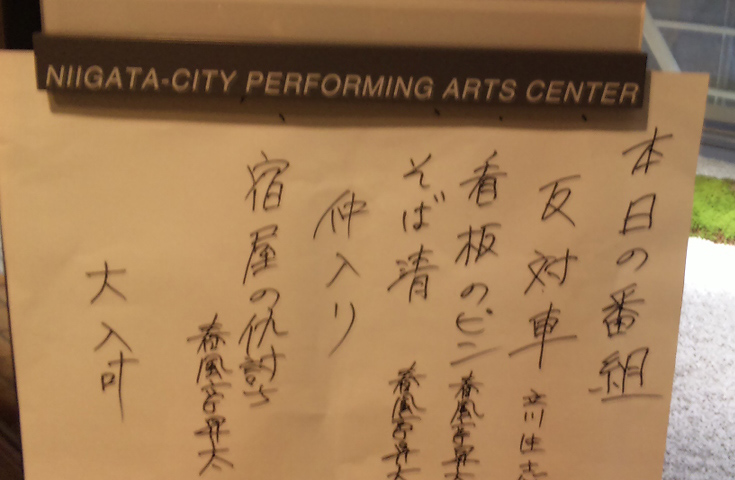 NIIGATA-CITY PERFORMING ARTS CENTER
本日の番組
反対車
立川生志
看板のピン
春風亭昇太
そば清
春風亭昇太
仲入り
宿屋の仇討
春風亭昇太
大入叶